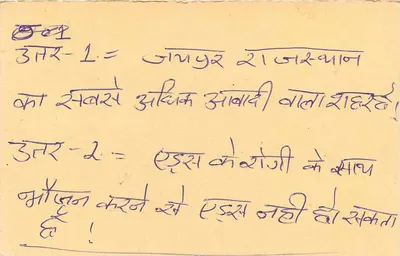 उतर-1.= जयपुर राजस्थान
का सबसे अधिक आबादी वाला शहर है!
उतर-2.= एड्स के रोगी के साथ
भौजन करने से एड्स नही हो सकता
है !